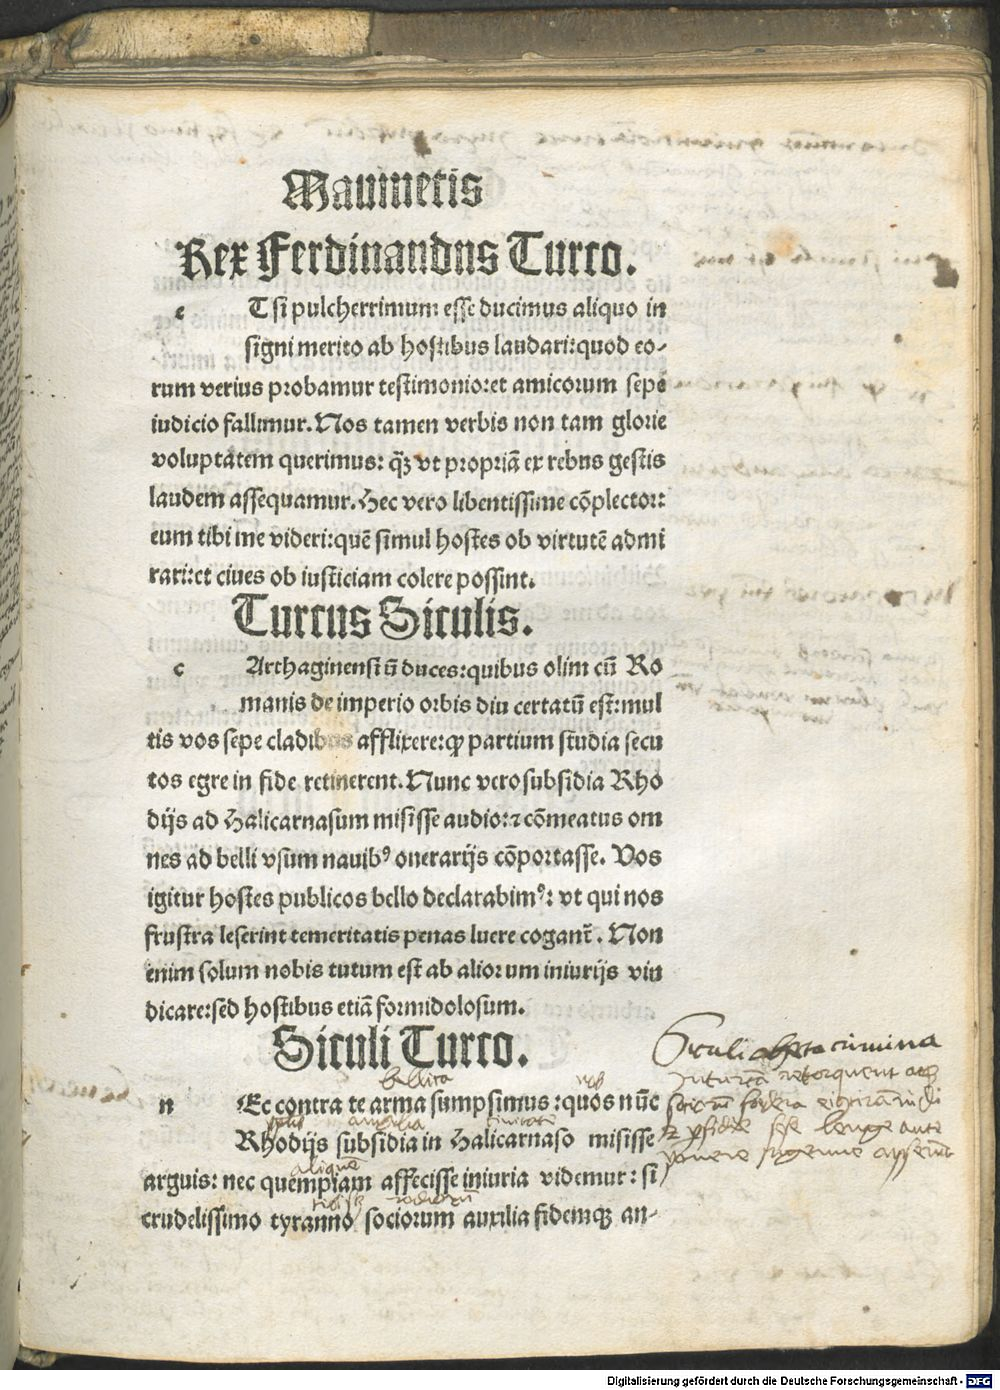 Maumetis
Rex Ferdinandus Turco.
e T si pulcherrimum esse ducimus aliquo in
signi merito ab hostibus laudari: quod eo-
rum verius probamur testimonio: et amicorum sepe
iudicio fallimur. Nos tamen verbis non tam glorie
voluptatem querimus: qꝫ vt propriā ex rebus gestis
laudem assequamur. Hec vero libentissime cōplector:
eum tibi me videri: quē simul hostes ob virtutē admi
rari: et ciues ob iusticiam colere possint.
Turcus Siculis.
c Arthaginensiū duces: quibus olim cū Ro
manis de imperio orbis diu certatū est: mul
tis vos sepe cladibus afflixere: ꝙ partium studia secu
tos egre in fide retinerent. Nunc vero subsidia Rho
dijs ad Halicarnasum misisse audio: ⁊ cōmeatus om
nes ad belli vsum nauibꝰ onerarijs cōportasse. Vos
igitur hostes publicos bello declarabimꝰ: vt qui nos
frustra leserint temeritatis penas luere cogant̄. Non
enim solum nobis tutum est ab aliorum iniurijs vin
dicare: sed hostibus etiā formidolosum.
Siculi Turco.
Siculi obiecta crimina
bellica
n Ec contra te arma sumpsimus: quos nūc
auxilia ciuitate
Rhodijs subsidia in Halicarnaso misisse
aliquē
arguis: nec quempiam affecisse iniuria videmur: si
crudelissimo tyranno sociorum auxilia fidemqꝫ an-
Digitalisierung gefördert durch die Deutsche Forschungsgemeinschaft - DFG